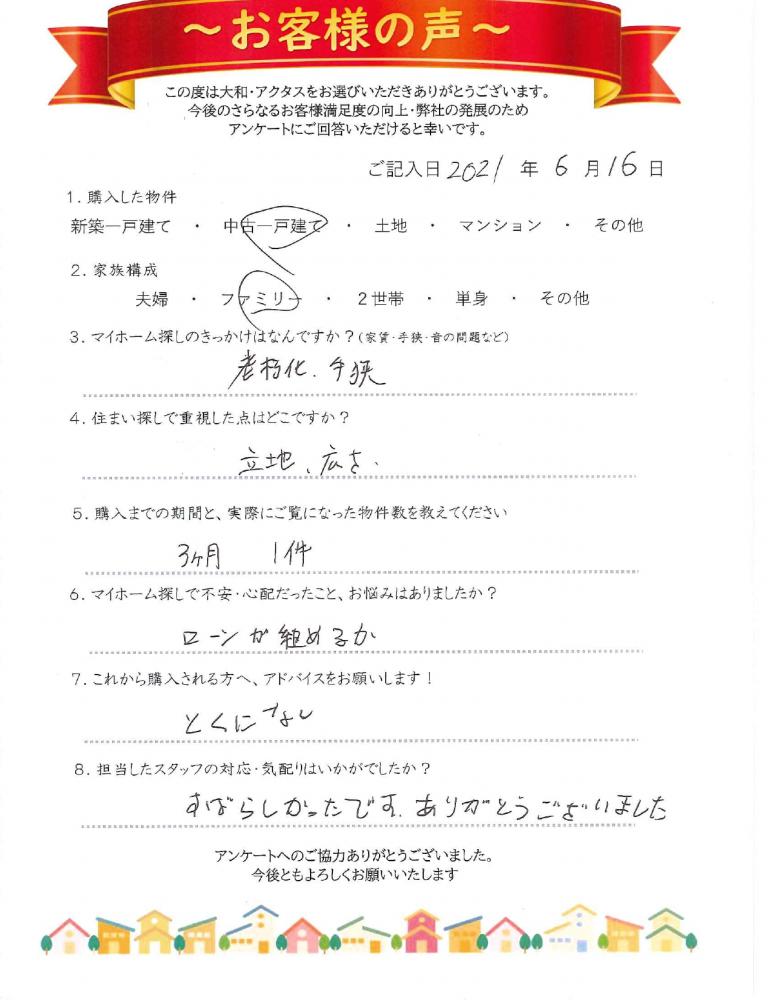 ～お客様の声～
この度は大和・アクタスをお選びいただきありがとうございます。
今後のさらなるお客様満足度の向上・弊社の発展のため
アンケートにご回答いただけると幸いです。
ご記入日 2021 年 6 月 16 日
1. 購入した物件
新築一戸建て ・ 中古一戸建て ・ 土地 ・ マンション ・ その他
2. 家族構成
夫婦 ・ ファミリー ・ 2世帯 ・ 単身 ・ その他
3. マイホーム探しのきっかけはなんですか？(家賃・手狭・音の問題など)
老朽化、手狭
4. 住まい探しで重視した点はどこですか？
立地、広さ、
5. 購入までの期間と、実際にご覧になった物件数を教えてください
3ヶ月 1件
6. マイホーム探しで不安・心配だったこと、お悩みはありましたか？
ローンが組めるか
7. これから購入される方へ、アドバイスをお願いします！
とくになし
8. 担当したスタッフの対応・気配りはいかがでしたか？
すばらしかったです。ありがとうございました
アンケートへのご協力ありがとうございました。
今後ともよろしくお願いいたします